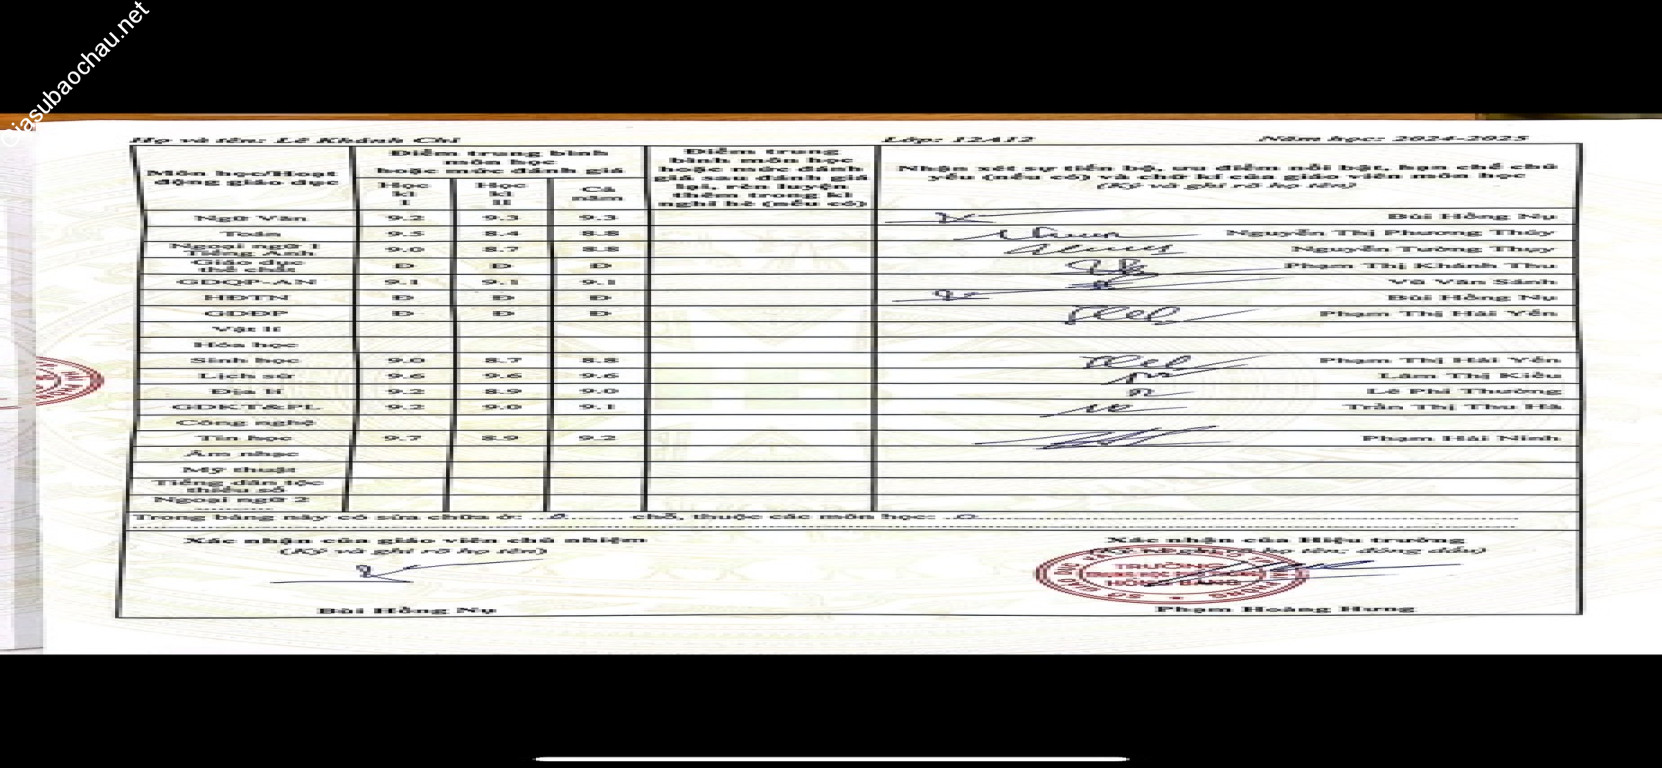 Giasubaochau.net
Họ và tên: Lê Khánh Chi Lớp: 12A12 Năm học: 2024-2025
Môn học/Hoạt động giáo dục
Điểm trung bình môn học hoặc mức đánh giá
Học kì I
Học kì II
Cả năm
Điểm trung bình môn học hoặc mức đánh giá sau đánh giá lại, rèn luyện thêm trong kì nghỉ hè (nếu có)
Nhận xét sự tiến bộ, ưu điểm nổi bật, hạn chế chủ yếu (nếu có) và chữ kí của giáo viên môn học
(Ký và ghi rõ họ tên)
Ngữ Văn 9.2 9.3 9.3 Bùi Hồng Nụ
Toán 9.5 8.4 8.8 Nguyễn Thị Phương Thúy
Ngoại ngữ 1 Tiếng Anh 9.0 8.7 8.8 Nguyễn Tường Thụy
Giáo dục thể chất Đ Đ Đ Phạm Thị Khánh Thu
GDQP-AN 9.1 9.1 9.1 Vũ Văn Sánh
HĐTN Đ Đ Đ Bùi Hồng Nụ
GDĐP Đ Đ Đ Phạm Thị Hải Yến
Vật lí
Hóa học
Sinh học 9.0 8.7 8.8 Phạm Thị Hải Yến
Lịch sử 9.6 9.6 9.6 Lâm Thị Kiều
Địa lí 9.2 8.9 9.0 Lê Phi Thường
GDKT&PL 9.2 9.0 9.1 Trần Thị Thu Hà
Công nghệ
Tin học 9.7 8.9 9.2 Phạm Hải Ninh
Âm nhạc
Mỹ thuật
Tiếng dân tộc thiểu số
Ngoại ngữ 2
Trong bảng này có sửa chữa ở: ..0........ chỗ, thuộc các môn học: ..0..........
Xác nhận của giáo viên chủ nhiệm
(Ký và ghi rõ họ tên)
Bùi Hồng Nụ
Xác nhận của Hiệu trưởng
(Ký và ghi rõ họ tên; đóng dấu)
TRƯỜNG
HỒNG BÀNG
Phạm Hoàng Hưng